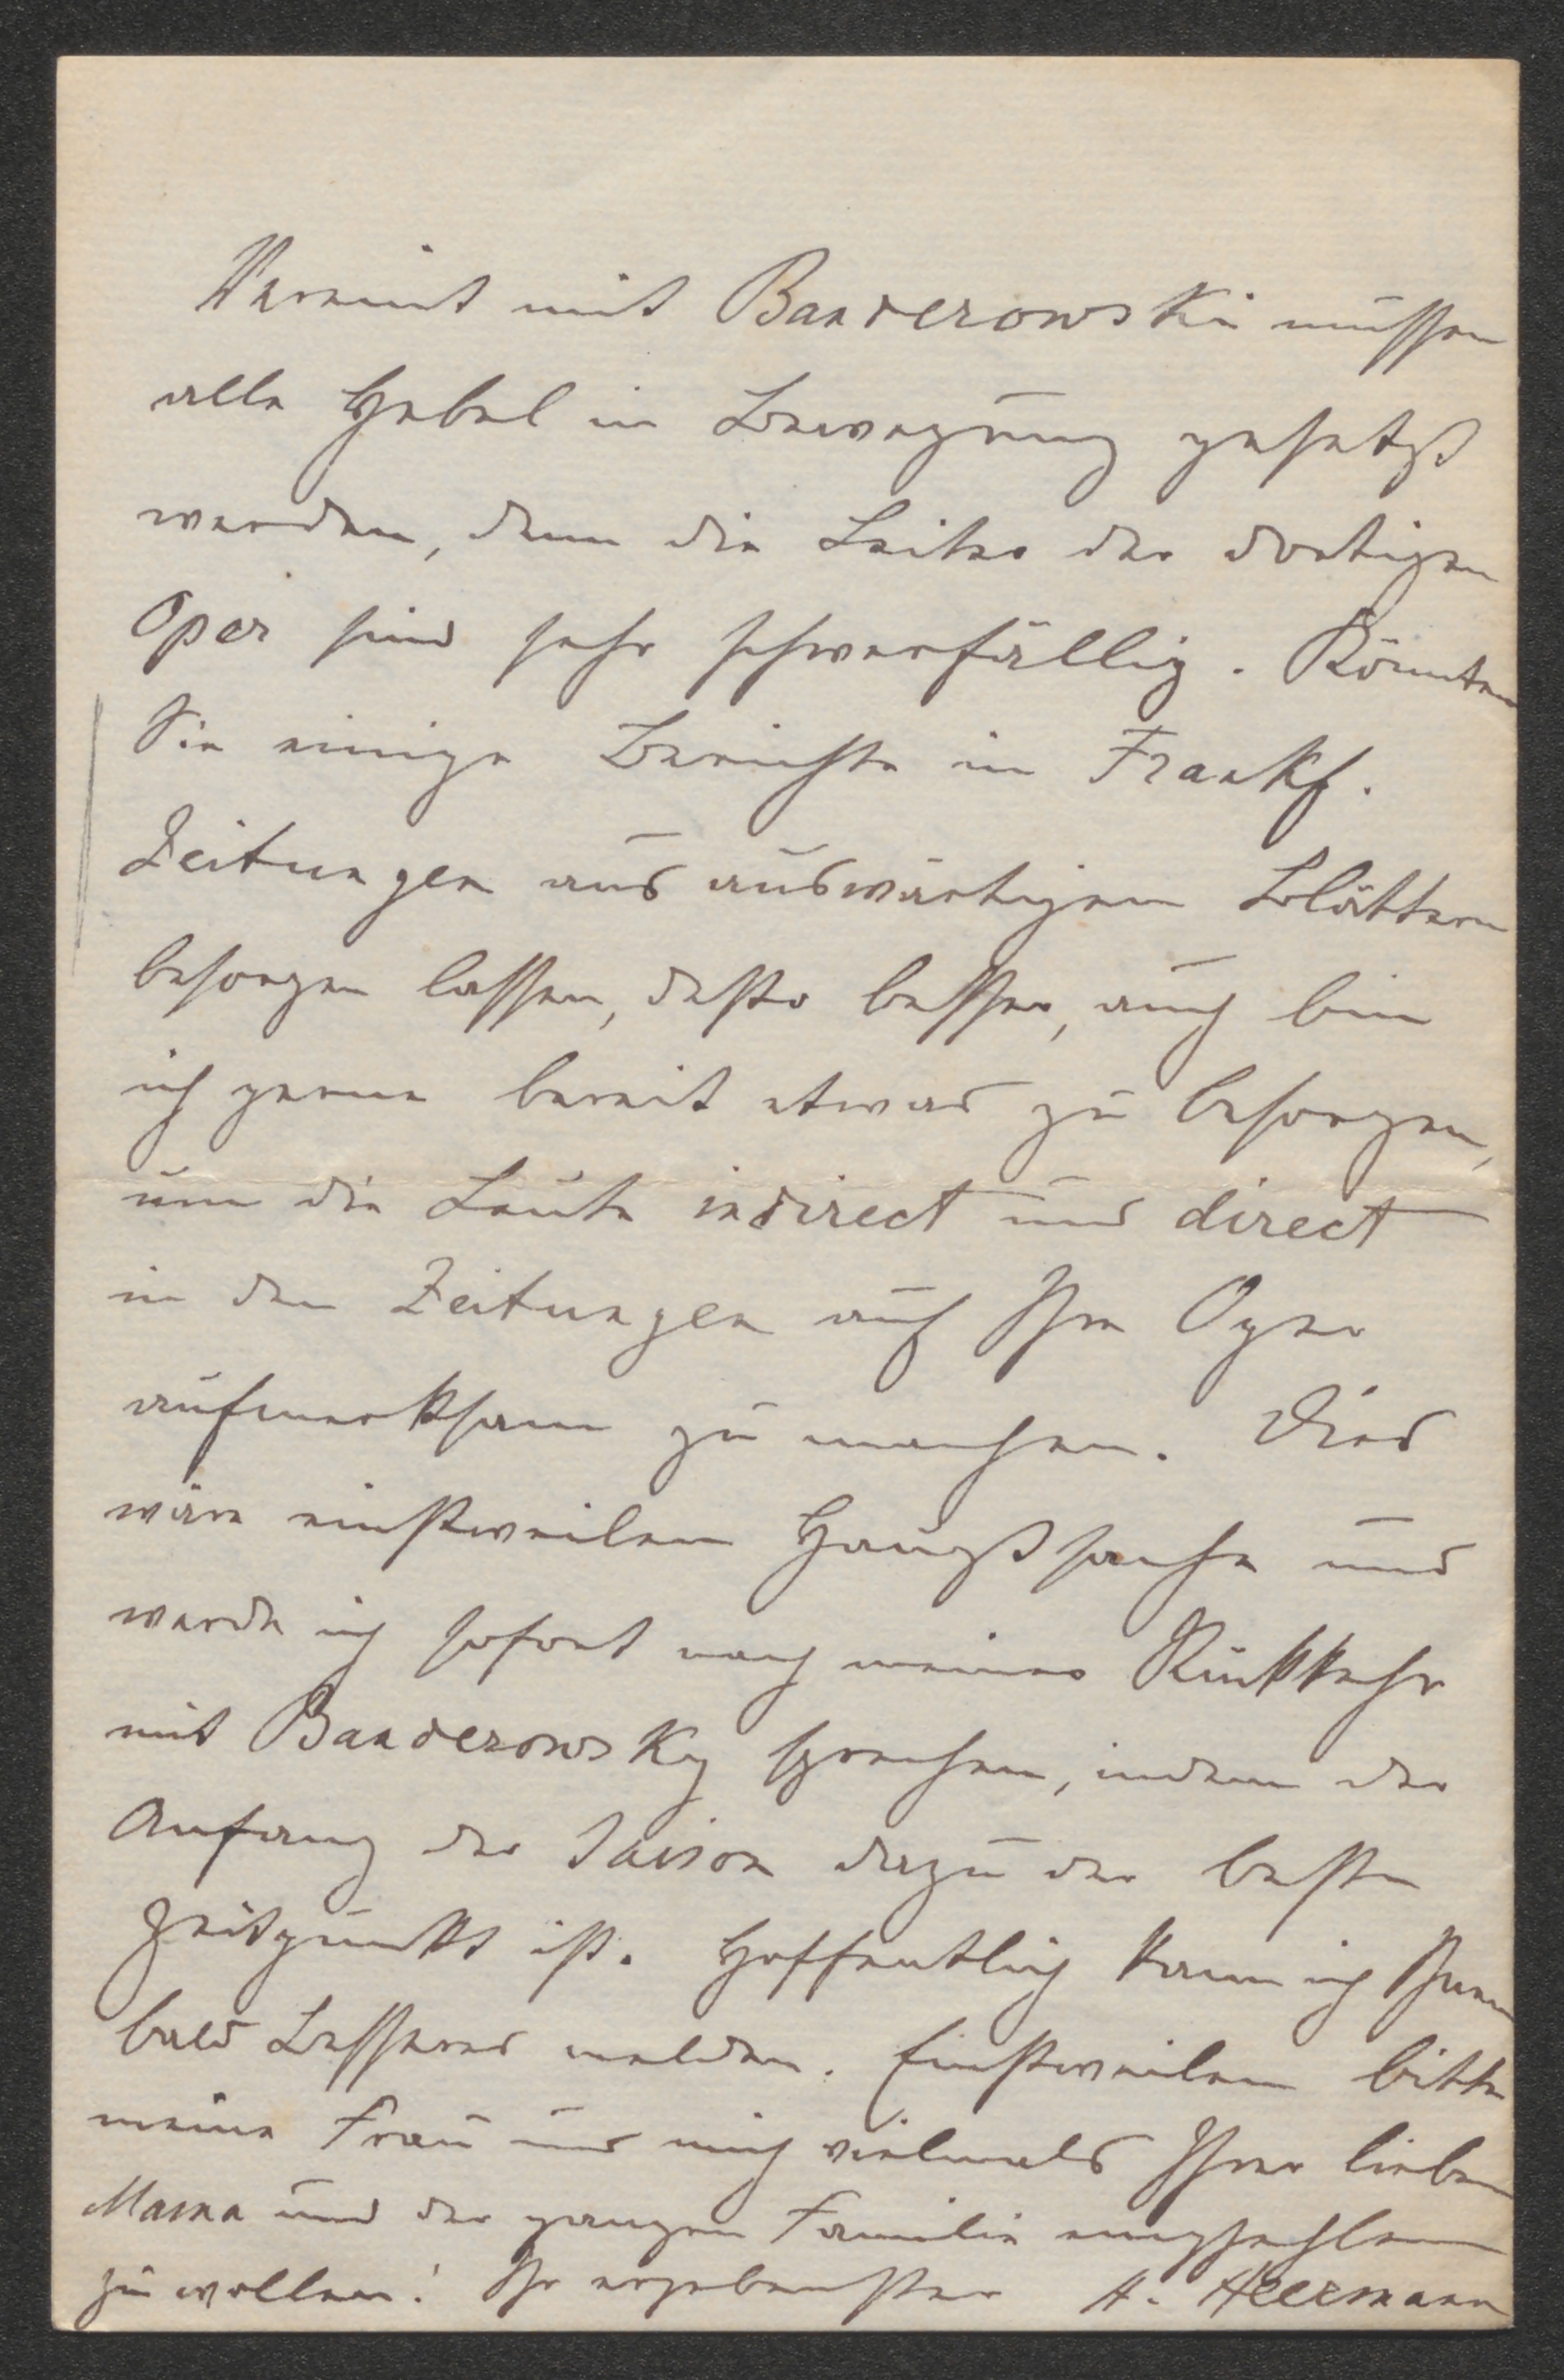 Vereint mit Banderowski müssen
alle Hebel in Bewegung gesetzt
werden, denn die Leiter der dortigen
Oper sind sehr schwerfällig. Könnten
Sie einige Berichte in Frankf.
Zeitungen aus auswärtigen Blättern
besorgen lassen, desto besser, auch bin
ich gerne bereit etwas zu besorgen,
um die Leute indirect und direct
in den Zeitungen auf Ihre Oper
aufmerksam zu machen. Dies
wäre einstweilen Hauptsache und
werde ich sofort nach meiner Rückkehr
mit Banderowsky sprechen, indem der
Anfang der Saison dazu der beste
Zeitpunkt ist. Hoffentlich kann ich Ihnen
bald Besseres melden. Einstweilen bitte
meine Frau und mich vielmals Ihrer lieben
Mama und der ganzen Familie empfehlen
zu wollen! Ihr ergebenster H. Heermann